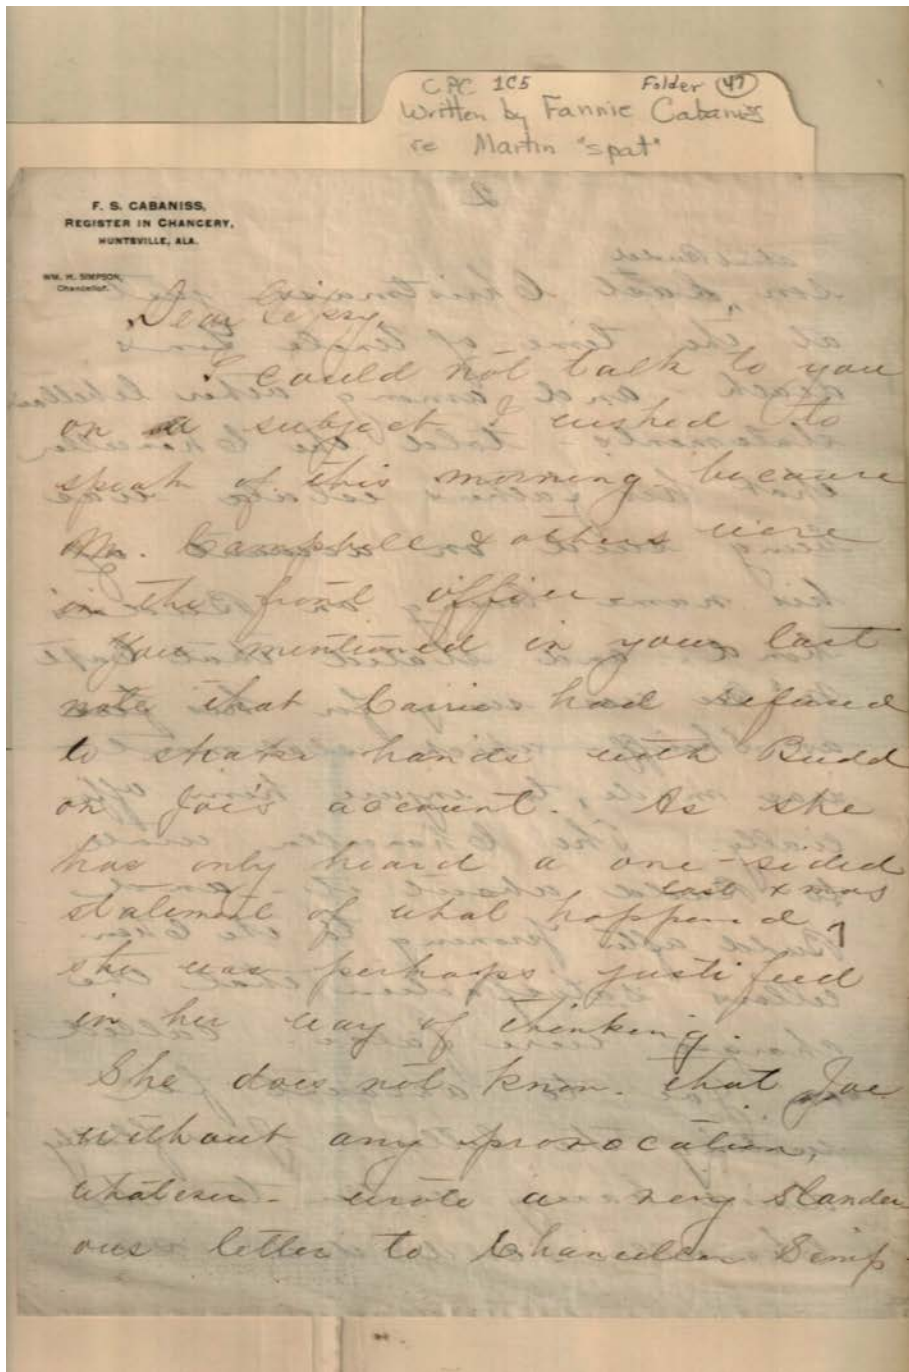 CPC 1C5 Folder 47
Written by Fannie Cabaniss
re Martin "spat"
2
F. S. CABANISS,
REGISTER IN CHANCERY,
HUNTSVILLE, ALA.
WM. H. SIMPSON,
Chancellor.
Dear
I could not talk to you
on a subject I wished to
speak of this morning because
Mr. Campbell & others were
in the front office
You mentioned in your last
note that Carrie had refused
to shake hands with Budd
on Joe's account. As she
has only heard a one-sided
last xmas
statement of what happened,
she was perhaps justified
in her way of thinking.
She does not know that Joe
without any provocation,
whatever - wrote a very slander
ous letter to Chancellor Simp-